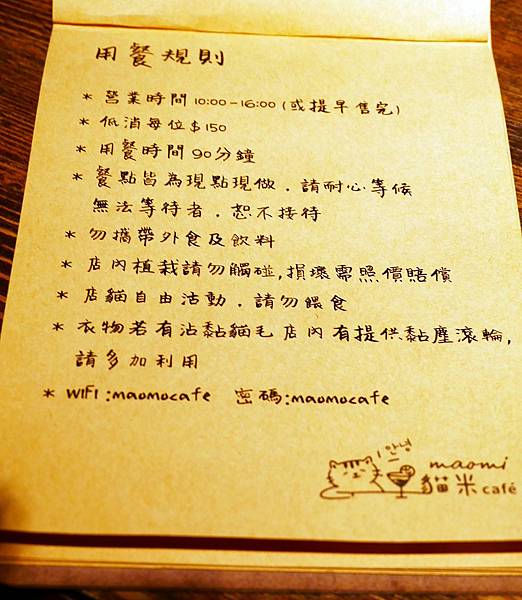 用餐規則
* 營業時間 10:00-16:00 (或提早售完)
* 低消每位$150
* 用餐時間 90分鐘
* 餐點皆為現點現做．請耐心等候
無法等待者．恕不接待
* 勿攜帶外食及飲料
* 店內植栽請勿觸碰,損壞需照價賠償
* 店貓自由活動．請勿餵食
* 衣物若有沾黏貓毛 店內有提供黏塵滾輪,
請多加利用
* WIFI :maomocafe 密碼:maomocafe
안녕
maomi
貓米 café